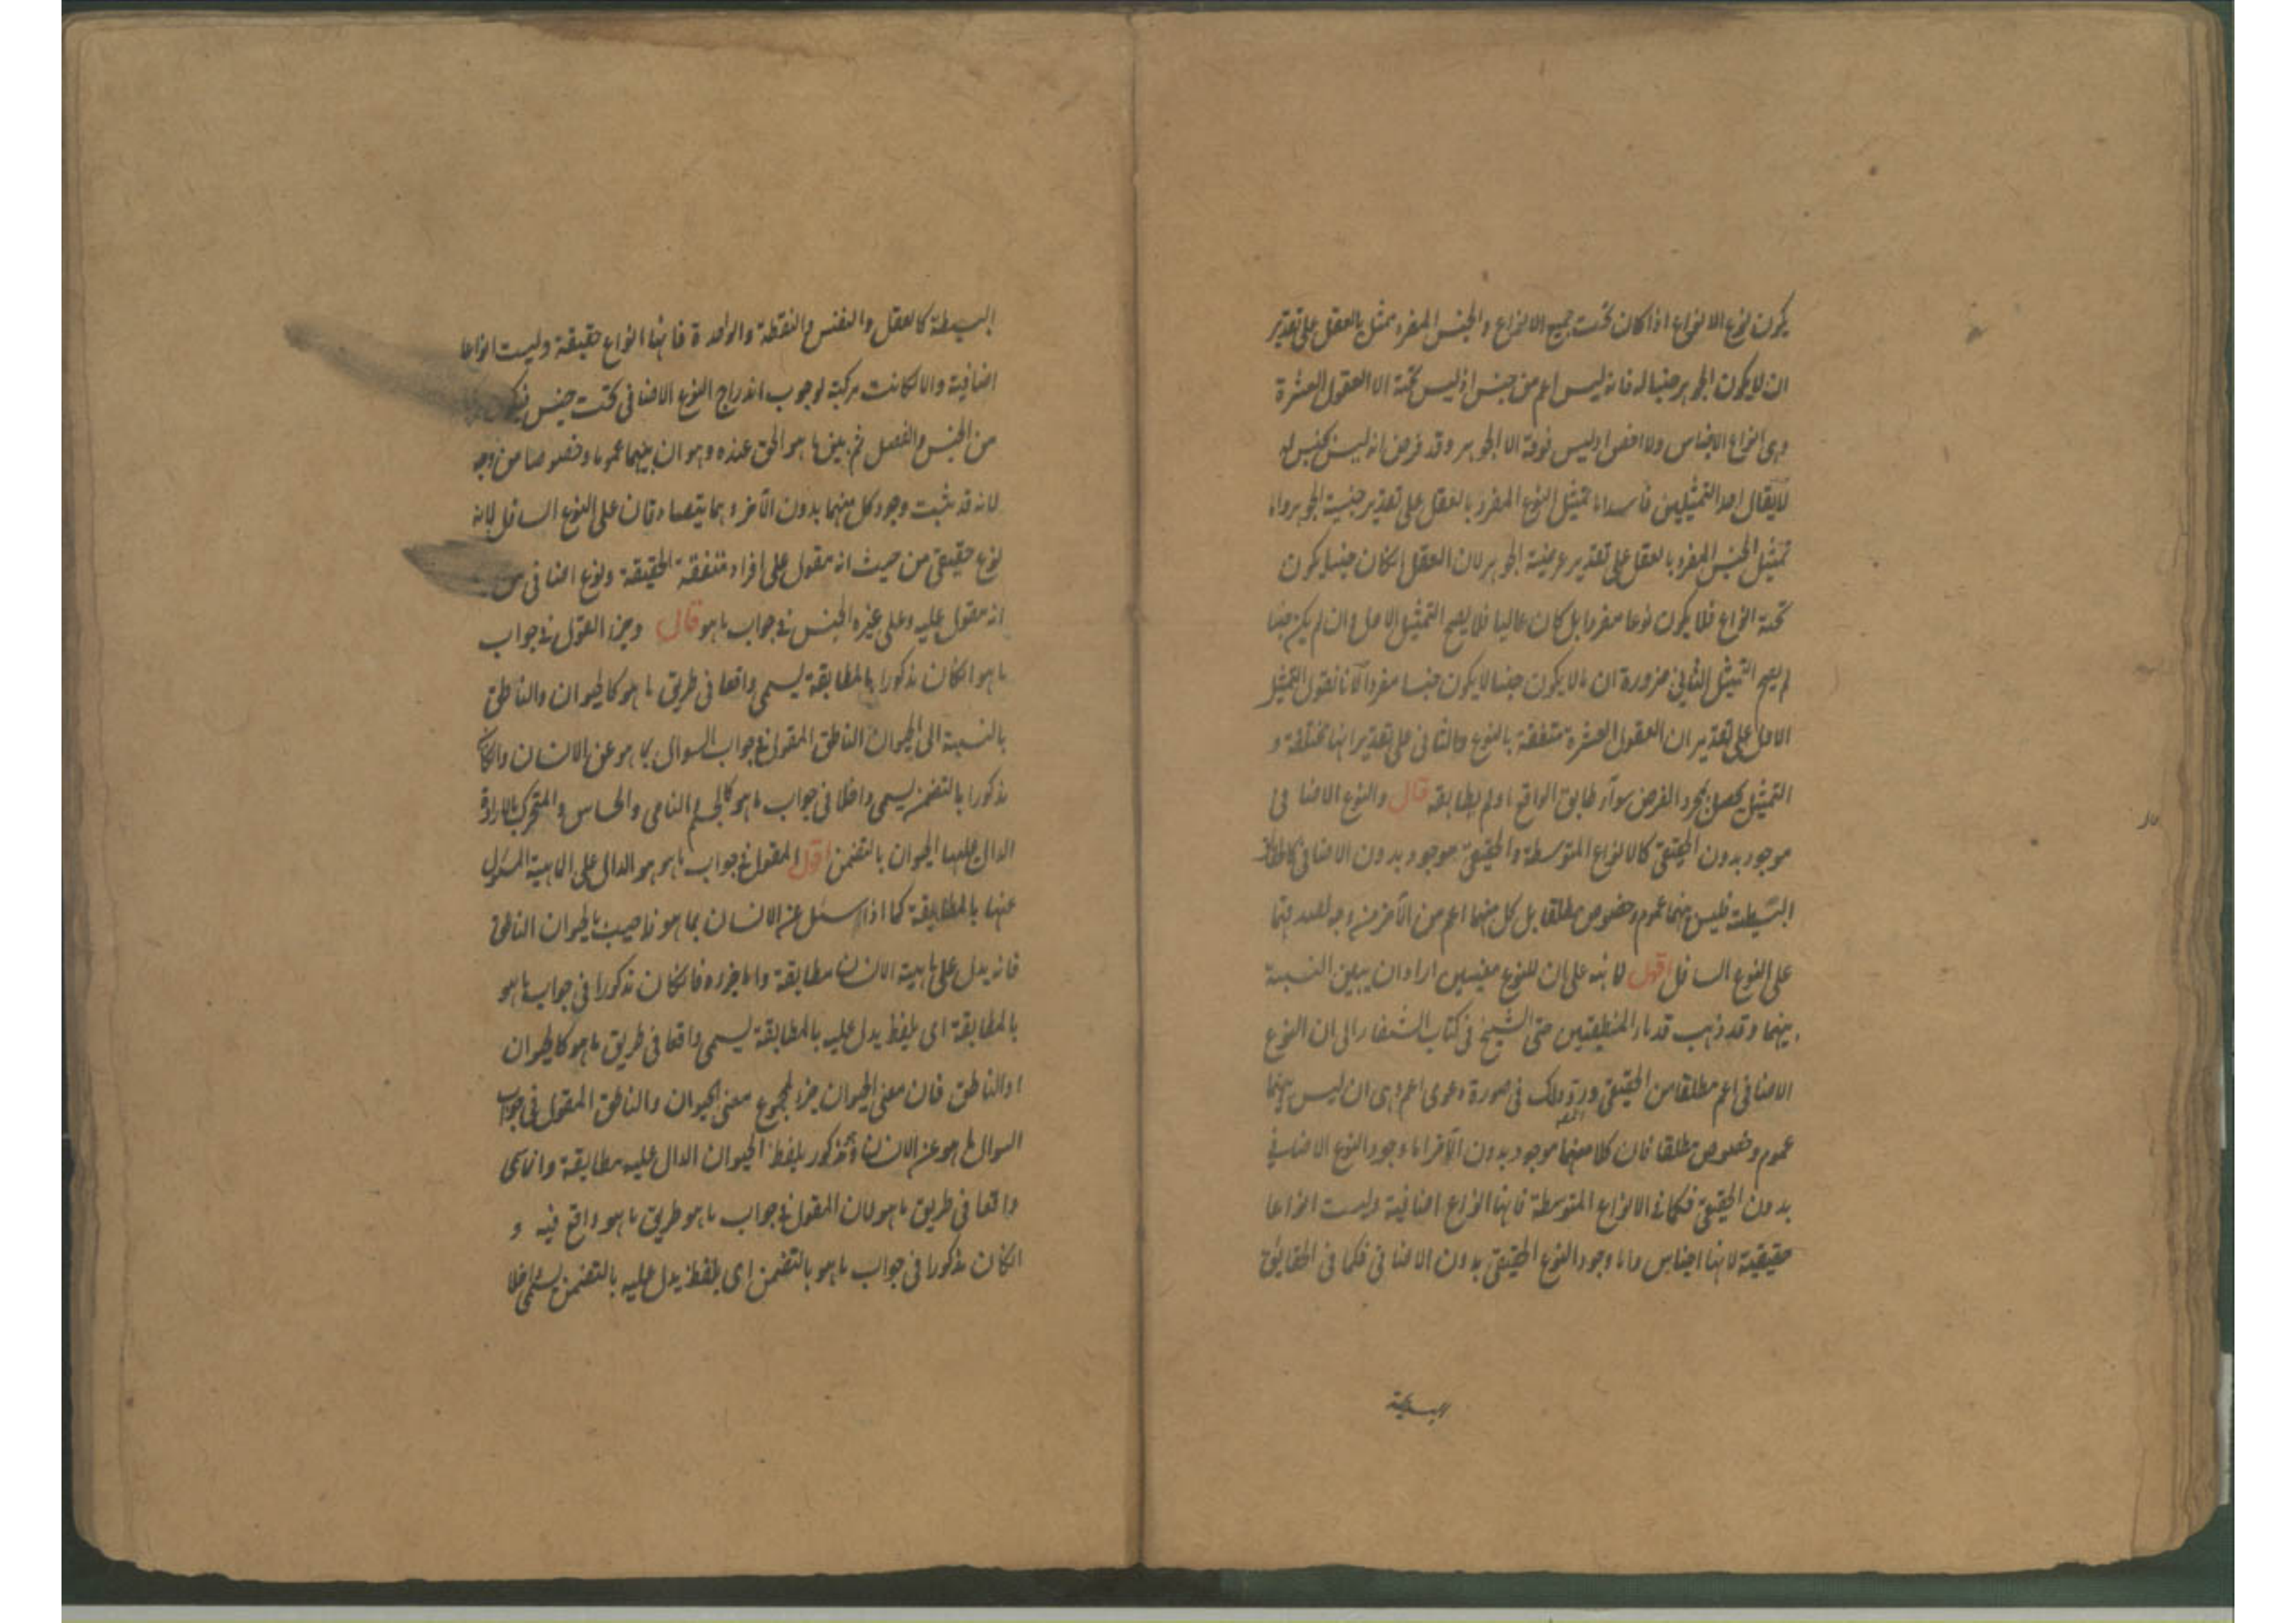 يكون نوع الانواع اذا كان تحت جميع الانواع والجنس المفرد ممثل بالعقل على تقدير
ان لا يكون الجوهر جنسا له فانه ليس اعم من جنس اذ ليس تحته الا العقول العشرة
وهى انواع لا اجناس ولا اخص اذ ليس فوقه الا الجوهر وقد فرض انه ليس بجنس له
لا يقال احد التمثيلين فاسد اما تمثيل النوع المفرد بالعقل على تقدير جنسية الجوهر واما
تمثيل الجنس المفرد بالعقل على تقدير عرضية الجوهر لان العقل انكان جنسا يكون
تحته انواع فلا يكون نوعا مفردا بل كان عاليا فلا يصح التمثيل الاول وان لم يكن جنسا
لم يصح التمثيل الثانى ضرورة ان ما لا يكون جنسا لا يكون جنسا مفردا لانا نقول التمثيل
الاول على تقدير ان العقول العشرة متفقة بالنوع والثانى على تقدير انها مختلفة و
التمثيل يحصل بمجرد الفرض سواء طابق الواقع او لم يطابقه قال والنوع الاضافى
موجود بدون الحقيقى كالانواع المتوسطة والحقيقى موجود بدون الاضافى كالحقائق
البسيطة فليس بينهما عموم وخصوص مطلقا بل كل منهما اعم من الآخر من وجه لصدقهما
على النوع السافل اقول لما نبه على ان للنوع معنيين اراد ان يبين النسبة
بينهما وقد ذهب قدماء المنطقيين حتى الشيخ فى كتاب الشفاء الى ان النوع
الاضافى اعم مطلقا من الحقيقى ورد ذلك فى صورة دعوى اعم وهى ان ليس بينهما
عموم وخصوص مطلقا فان كلا منهما موجود بدون الآخر اما وجود النوع الاضافى
بدون الحقيقى فكما فى الانواع المتوسطة فانها انواع اضافية وليست انواعا
حقيقية لانها اجناس واما وجود النوع الحقيقى بدون الاضافى فكما فى الحقايق
البسيطة
البسيطة كالعقل والنفس والنقطة والوحدة فانها انواع حقيقة وليست انواعا
اضافية والا لكانت مركبة لوجوب اندراج النوع الاضافى تحت جنس فيكون
من الجنس والفصل ثم بين ما هو الحق عنده وهو ان بينهما عموما وخصوصا من وجه
لانه قد ثبت وجود كل منهما بدون الآخر وهما يتصادقان على النوع السافل لانه
نوع حقيقى من حيث انه مقول على افراد متفقة الحقيقة ونوع اضافى من
انه مقول عليه وعلى غيره الجنس فى جواب ما هو قال وجزء المقول فى جواب
ما هو انكان مذكورا بالمطابقة يسمى واقعا فى طريق ما هو كالحيوان والناطق
بالنسبة الى الحيوان الناطق المقول فى جواب السوال بما هو عن الانسان وانكان
مذكورا بالتضمن يسمى داخلا فى جواب ما هو كالجسم النامى والحساس والمتحرك بالارادة
الدال عليها الحيوان بالتضمن اقول المقول فى جواب ما هو هو الدال على الماهية المسئول
عنها بالمطابقة كما اذا سئل عن الانسان بما هو فاجيب بالحيوان الناطق
فانه يدل على ماهية الانسان مطابقة واما جزءه فانكان مذكورا فى جواب ما هو
بالمطابقة اى بلفظ يدل عليه بالمطابقة يسمى واقعا فى طريق ما هو كالحيوان
او الناطق فان معنى الحيوان جزء لمجموع معنى الحيوان والناطق المقول فى جواب
السوال بما هو عن الانسان مذكور بلفظ الحيوان الدال عليه مطابقة وانما سمى
واقعا فى طريق ما هو لان المقول فى جواب ما هو طريق ما هو واقع فيه و
انكان مذكورا فى جواب ما هو بالتضمن اى بلفظ يدل عليه بالتضمن يسمى داخلا